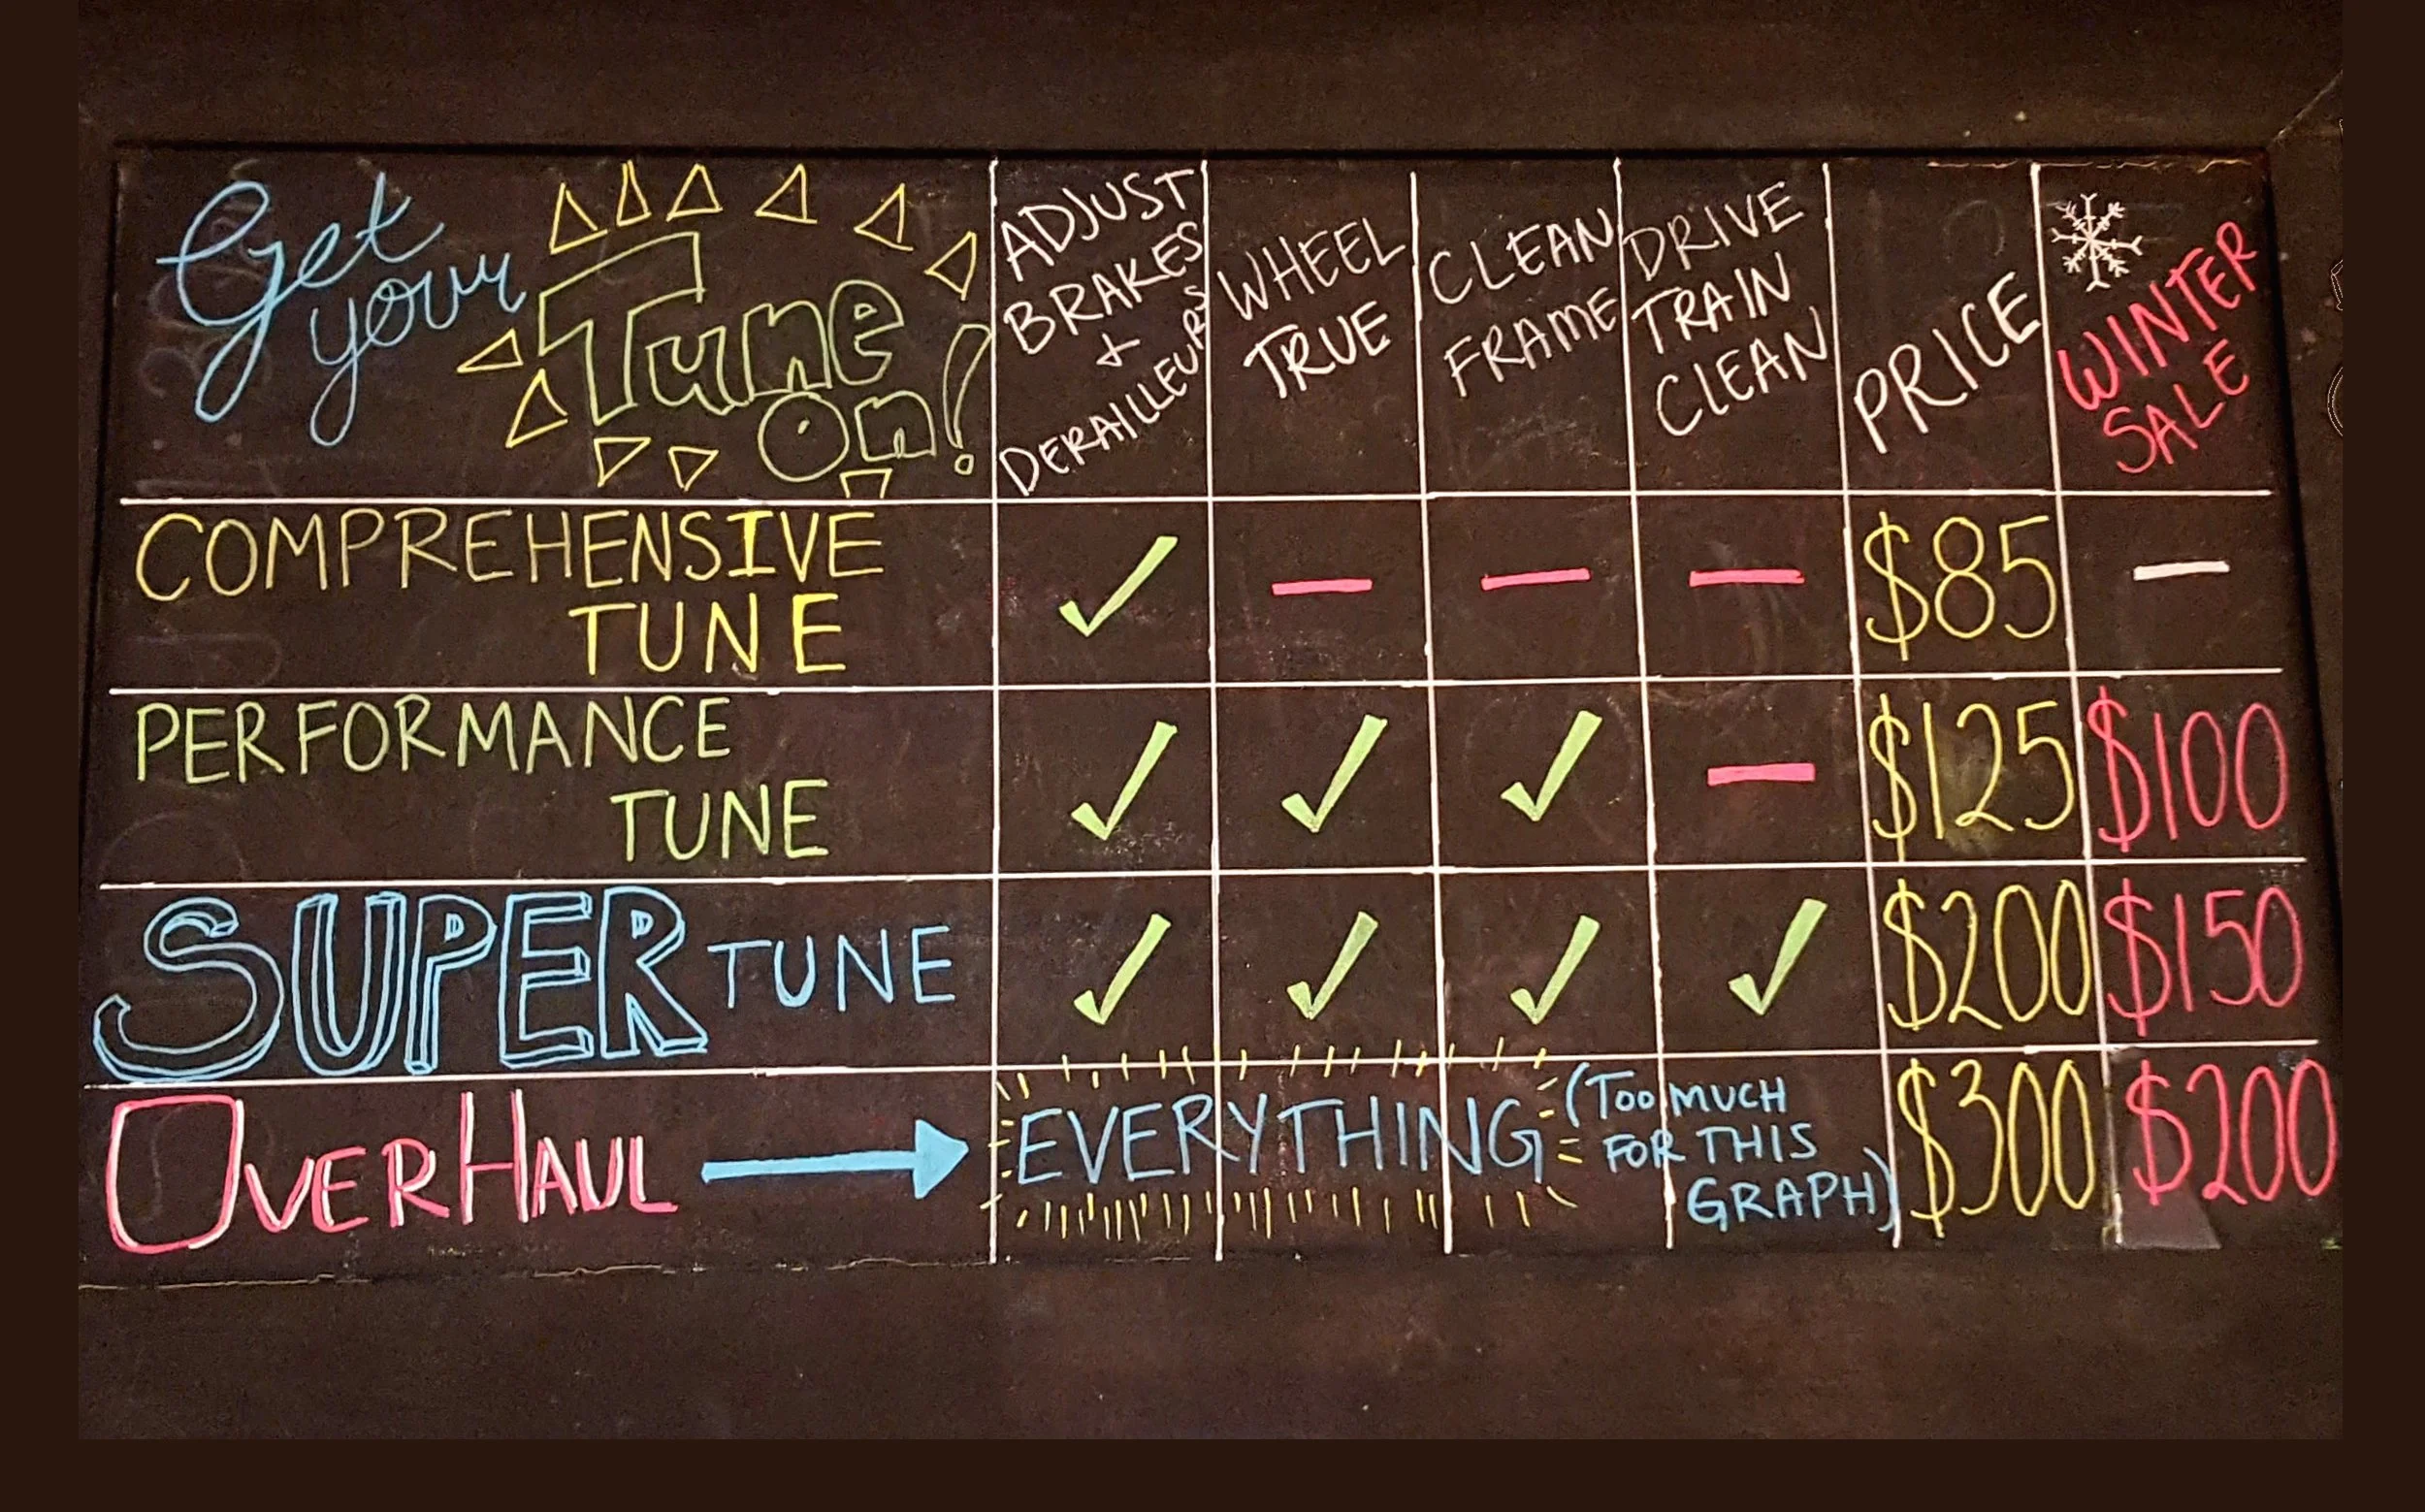 Get your Tune On!
ADJUST BRAKES + DERAILLEURS
WHEEL TRUE
CLEAN FRAME
DRIVE TRAIN CLEAN
PRICE
WINTER SALE
COMPREHENSIVE TUNE ✓ — — — $85 —
PERFORMANCE TUNE ✓ ✓ ✓ — $125 $100
SUPER TUNE ✓ ✓ ✓ ✓ $200 $150
OVERHAUL → EVERYTHING (TOO MUCH FOR THIS GRAPH) $300 $200